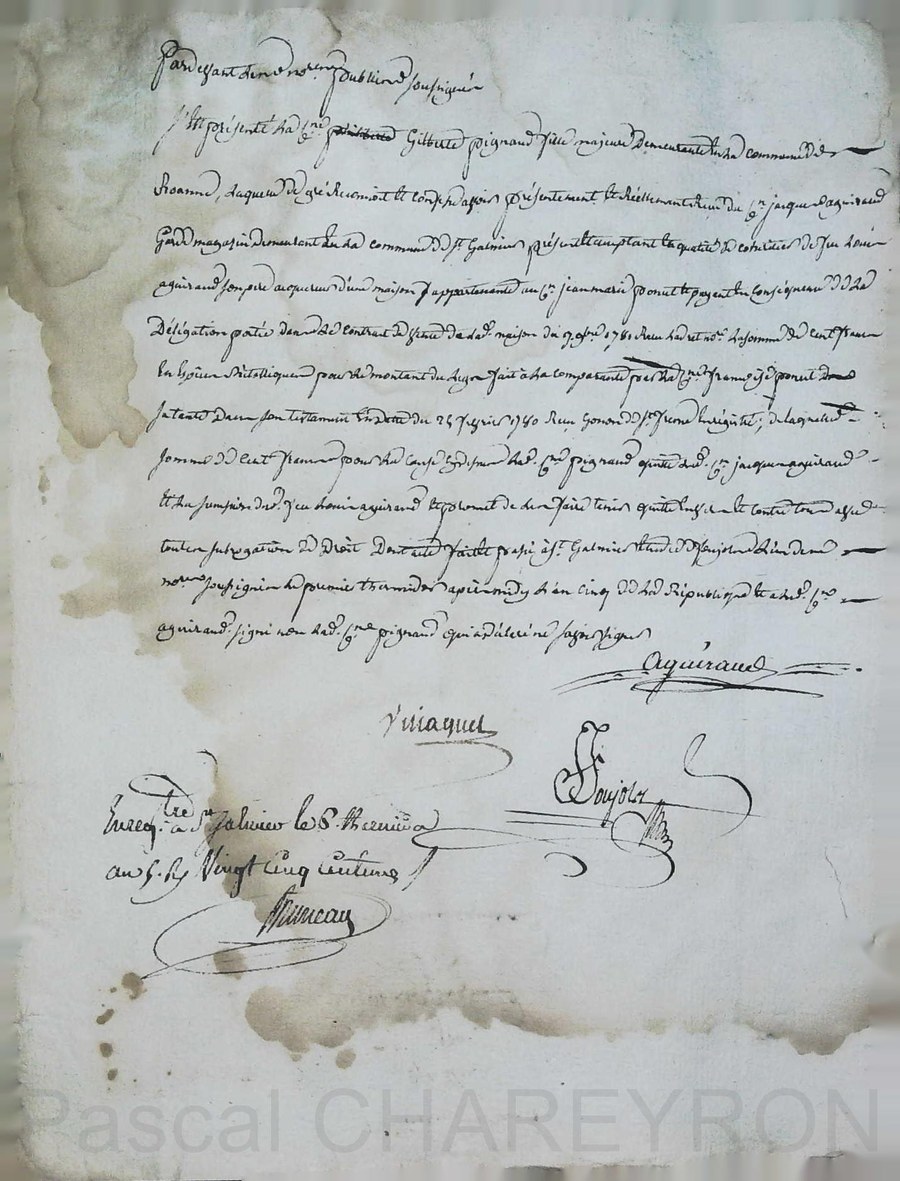 Pardevant les notaires publics soussignés
S'est présenté la C.ne Gilberte pignaud fille majeure Demeurante en la commune de
Roanne, Laquelle de gré Reconnoit et confesse avoir présentement et Réellement Reçu du C.en jacque aguiraud
Garde magasin demeurant en la commune de St. Galmier présent acceptant en qualité de cohéritier de feu Louis
aguiraud son père acquereur d'une maison appartenante au C.en jean marie poncet et payant en conséquence de la
Délégation portée dans le contrat de vente de lad. maison du 1781 Reçu not. la somme de cent francs
En Espèces Métalliques pour le montant du Legs fait à la comparante par la C.ne françoise poncet
sa tante Dans son testament En datte du 25 février 1780 Reçu Enregistré, de laquelle
somme de cent francs pour la cause lad. C.ne pignaud quitte led. C.en jacque aguiraud
et la succession dud. feu Louis aguiraud et promet de les faire tenir quitte envers et contre tous avec
toute subrogation de Droit Dont acte fait et passé à St. Galmier Etude de Soujols L'un des
notaires soussignés le premier thermidor après midy L'an cinq de la République et a led. C.en
aguiraud signé non lad. C.ne pignaud qui a déclaré ne savoir signer
aguiraud
Soujols
Enreg.tré à St Galmier le 6. thermidor
an 5. Rç Vingt cinq centimes
Bruneau
Pascal CHAREYRON